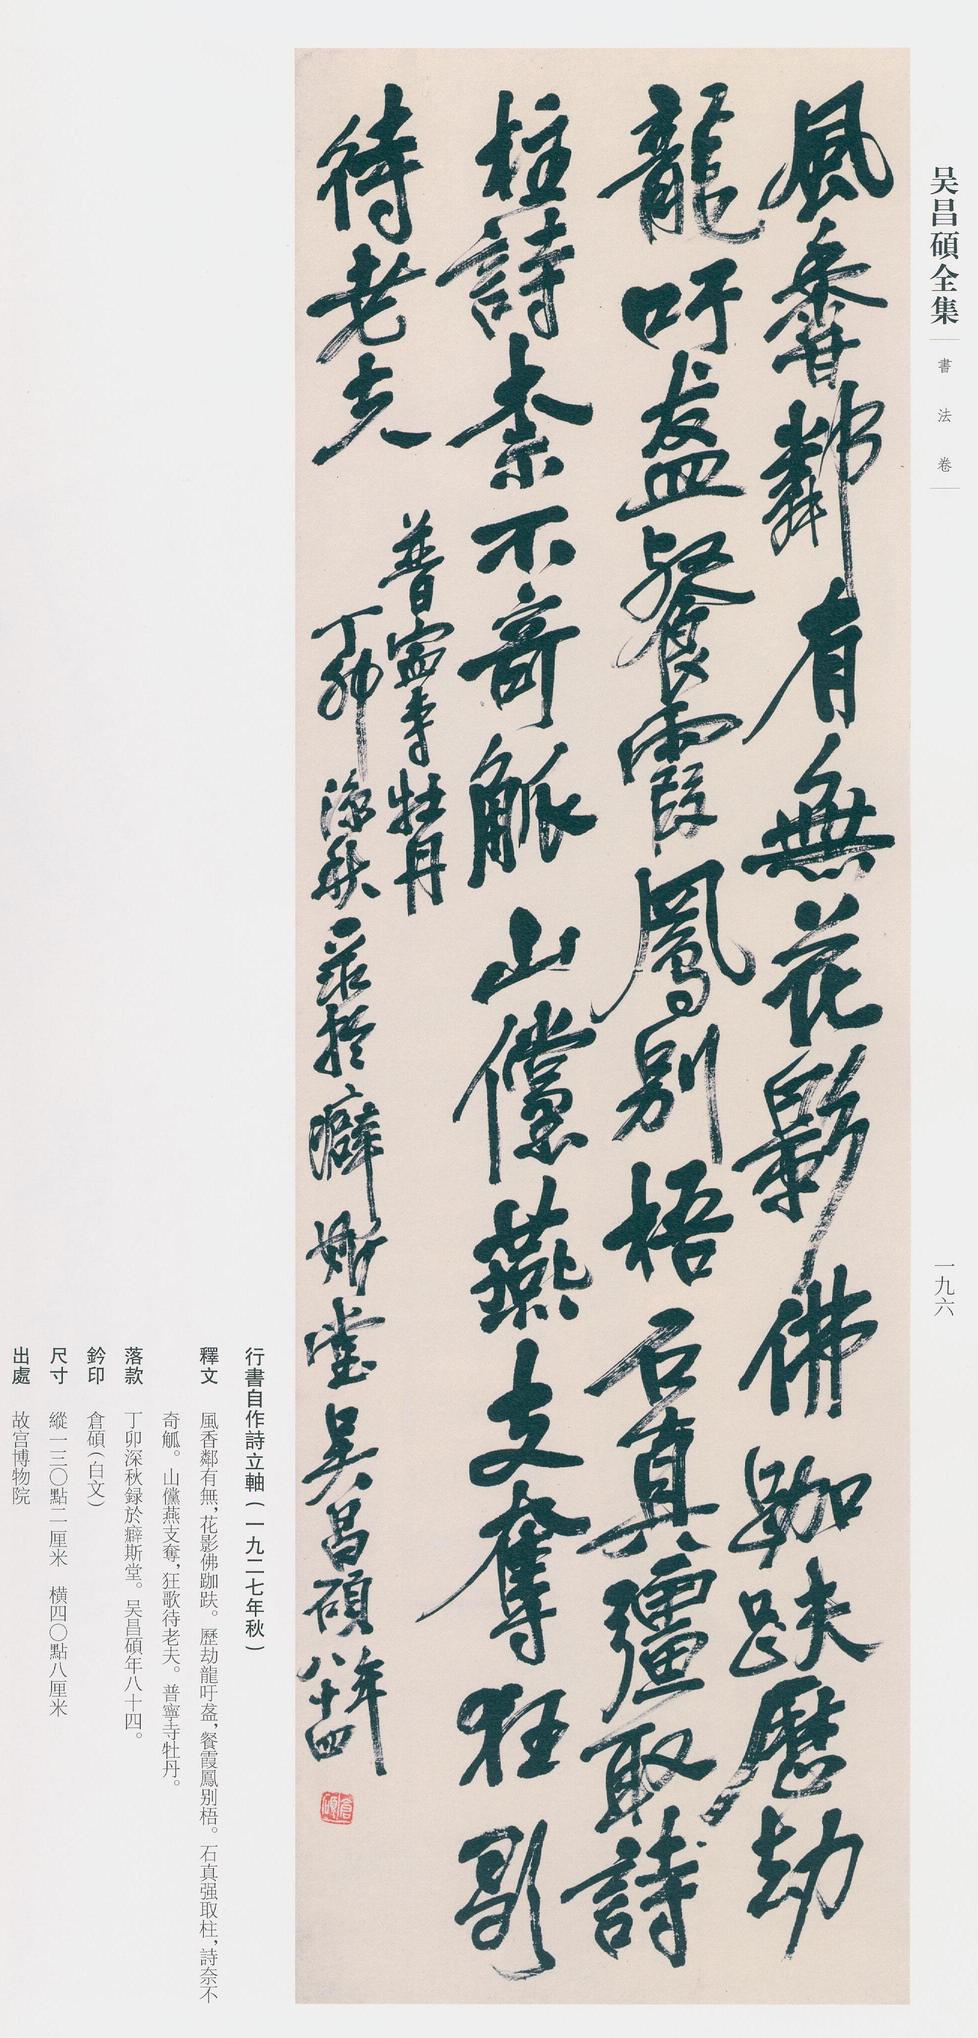 吴昌碩全集
書法卷
一九六
風香鄰有無花影佛跏趺歷劫
龍吁盍餐霞鳳別梧石真彊取詩
柱詩柰不奇觚山儻燕支奪狂歌
待老夫
普寧寺牡丹
丁卯深秋录於癖斯堂吴昌碩年八十四
倉碩
行書自作詩立軸（一九二七年秋）
釋文 風香鄰有無，花影佛跏趺。歷劫龍吁盍，餐霞鳳別梧。石真强取柱，詩奈不
奇觚。山儻燕支奪，狂歌待老夫。普寧寺牡丹。
落款 丁卯深秋録於癖斯堂。吴昌碩年八十四。
鈐印 倉碩（白文）
尺寸 縱一三〇點二厘米 橫四〇點八厘米
出處 故宫博物院